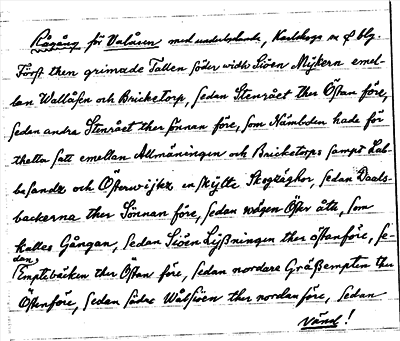 Rågång för Valåsen med underlydande, Karlskoga sn Ø blg.
Först then grimade Tallen söder widh Siöen Mijkern emel-
lan Wallåsen och Bricketorp, sedan Stenrået ther Östan före,
sedan andra Stenrået ther sunnan före, som Nämbden hade för
thetta satt emellan Allmäningen och Bricketorps sampt Lab-
besandz och Österwijkz enskylte Skogzäghor, sedan Daals-
backerna ther Sönnan före, sedan wägen Öster åth, som
kalles Gångan, sedan Siöen Lyßningen ther östanföre, se-
dan
Emptebäcken ther Östan före, sedan nordare Gräßempten ther
Östenföre, sedan södre Wåtsiöen ther nordan före, sedan
Vänd!